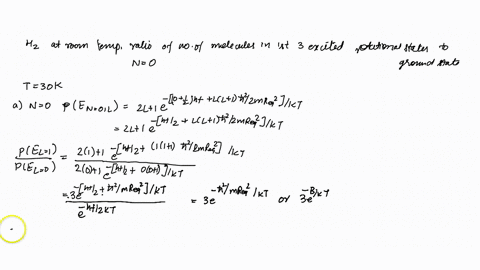 H₂ at room temp, ratio of no. of molecules in 1st 3 excited rotational states to
N=0 ground state
T=30K
a) N=0 P(E_{N=0,L}) = 2L+1 e^{-[(0+½)ħ + L(L+1) ħ²/2mReq²]/kT}
= 2L+1 e^{-[ħ/2 + L(L+1) ħ²/2mReq²]/kT}
P(E_{L=1})/P(E_{L=0}) = 2(1)+1 e^{-[ħ/2 + (1(1+1) ħ²/2mReq²]/kT} / 2(0)+1 e^{-[ħ/2 + 0(0+1)]/kT}
= 3e^{-[ħ/2 + ħ²/mReq²]/kT} / e^{-ħ/2kT} = 3e^{-ħ²/mReq²/kT} or 3e^{-B/kT}